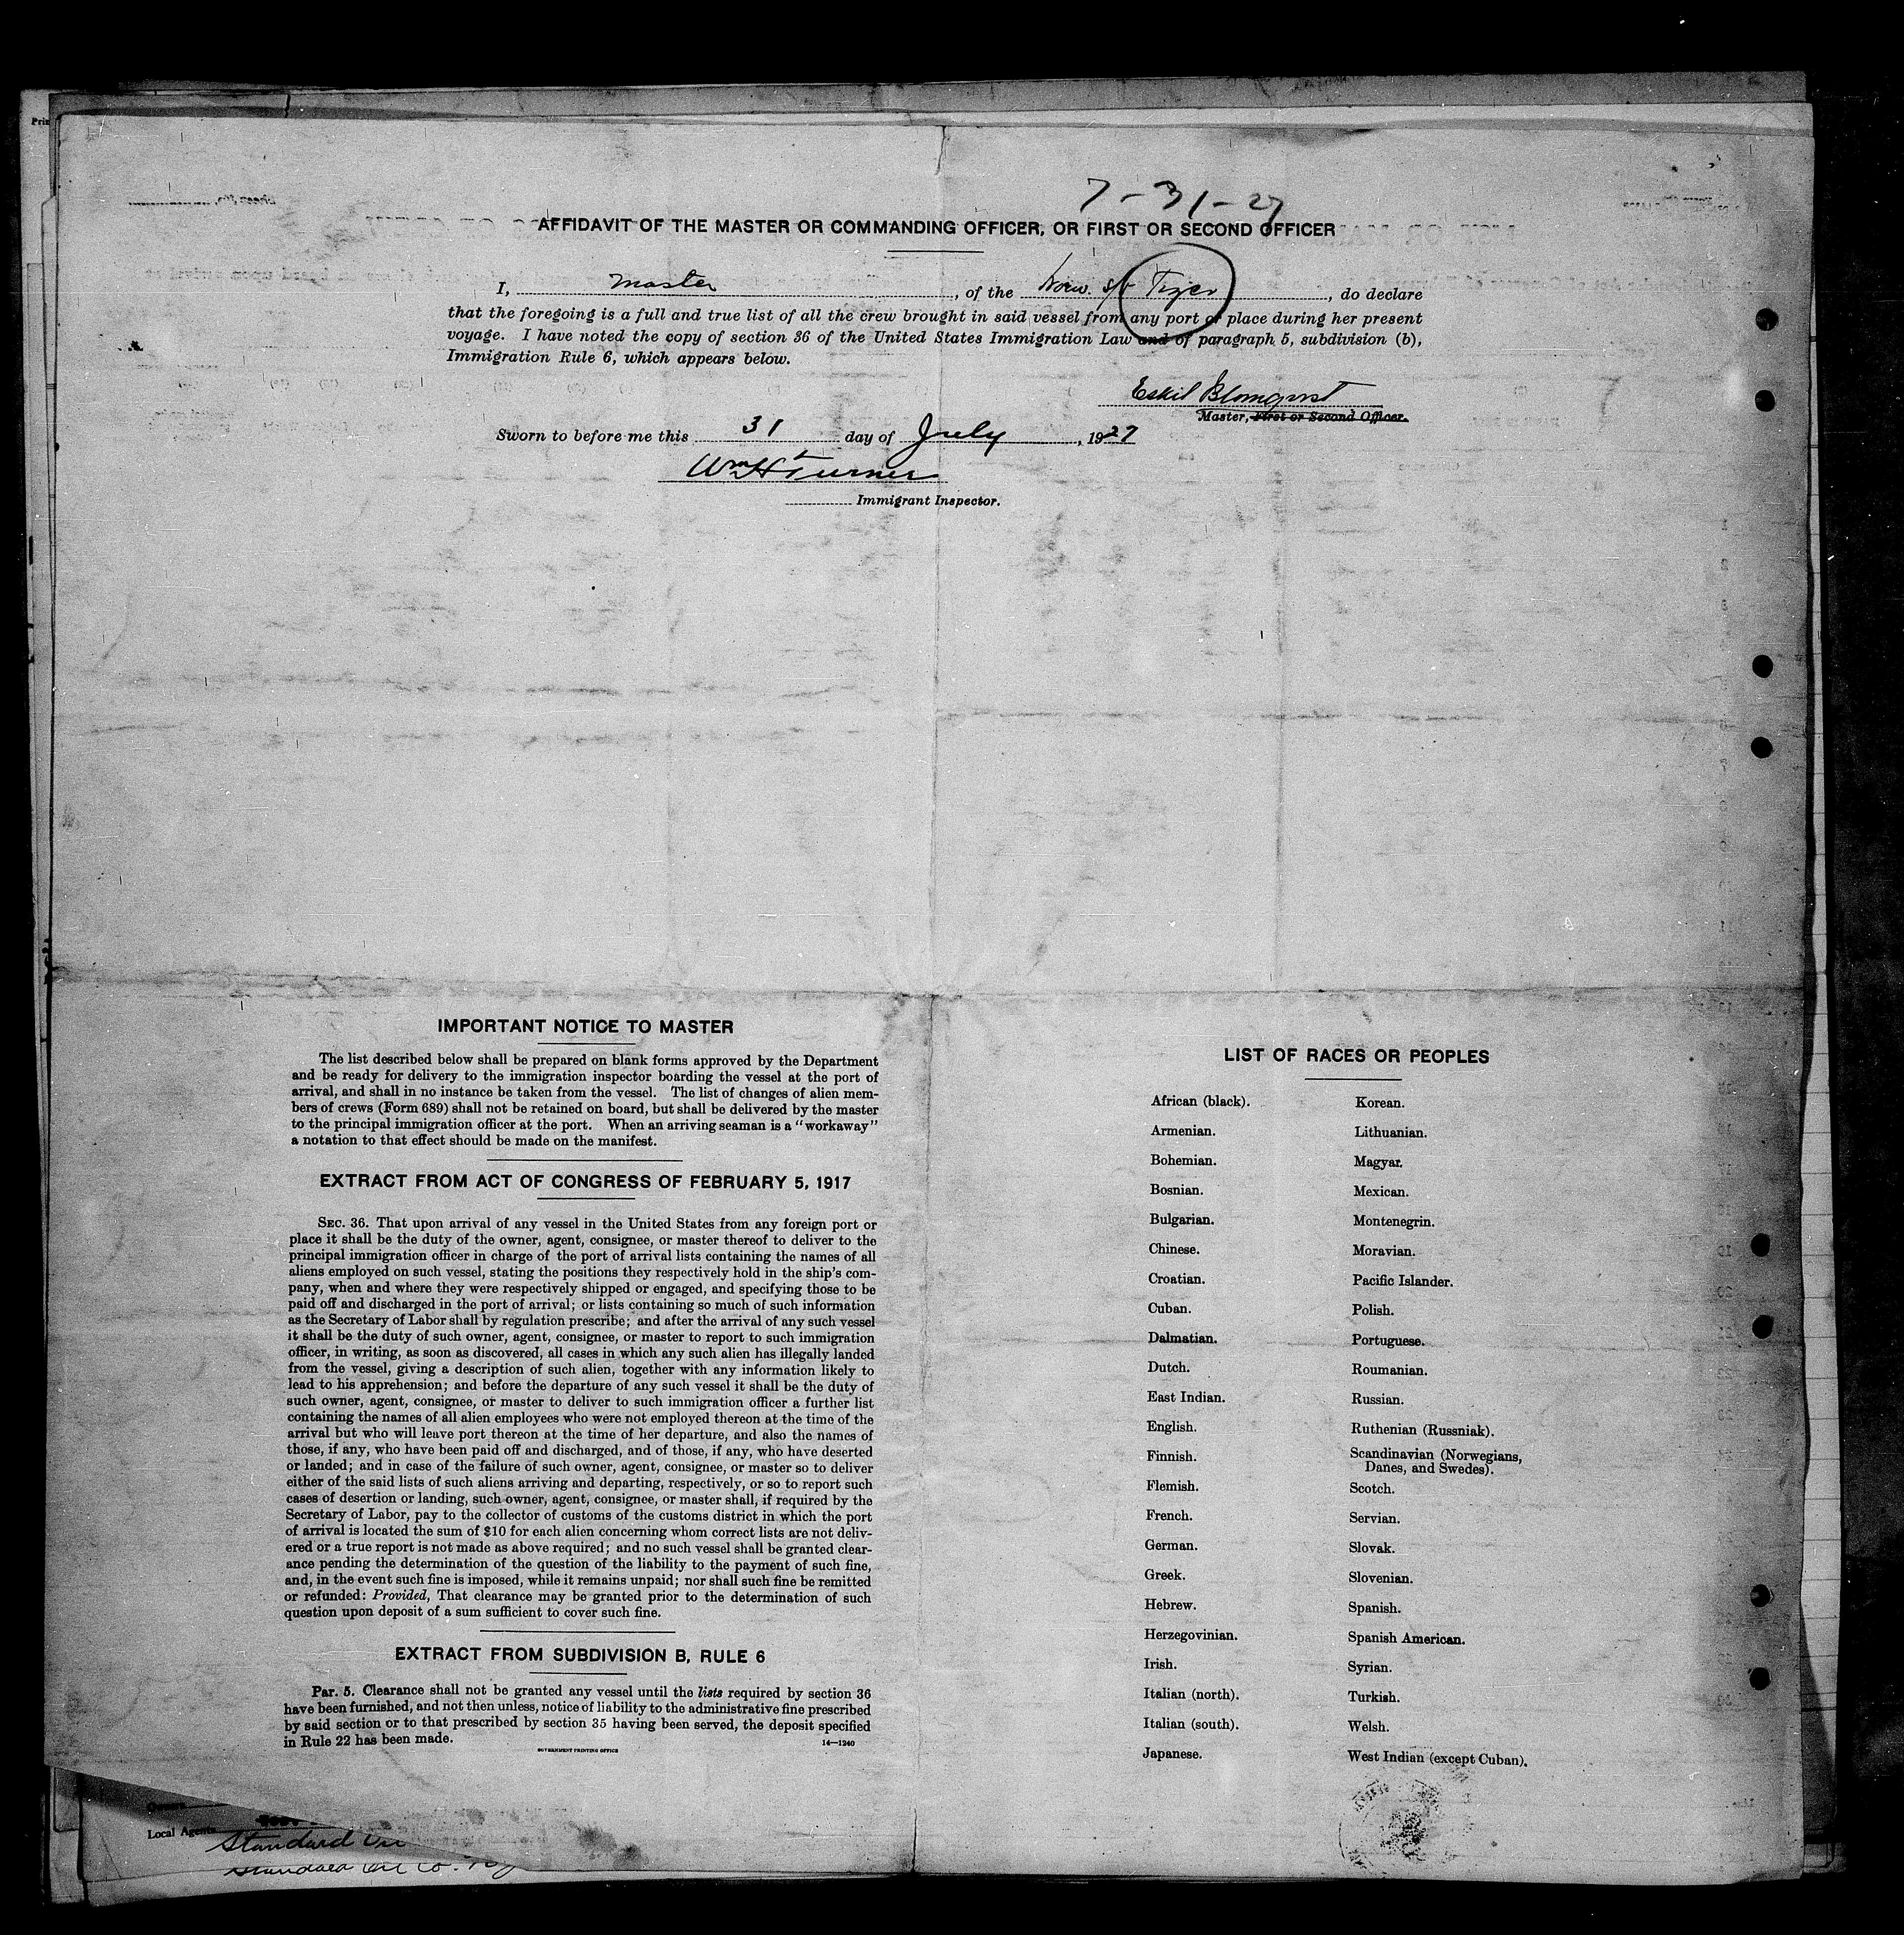 7-31-27
AFFIDAVIT OF THE MASTER OR COMMANDING OFFICER, OR FIRST OR SECOND OFFICER
I, Master, of the Norw. s/s Tiger, do declare
that the foregoing is a full and true list of all the crew brought in said vessel from any port or place during her present
voyage. I have noted the copy of section 36 of the United States Immigration Law and of paragraph 5, subdivision (b),
Immigration Rule 6, which appears below.
Eskil Blomqvist
Master, First or Second Officer.
Sworn to before me this 31 day of July, 1927
Wm H Turner
Immigrant Inspector.
IMPORTANT NOTICE TO MASTER
The list described below shall be prepared on blank forms approved by the Department
and be ready for delivery to the immigration inspector boarding the vessel at the port of
arrival, and shall in no instance be taken from the vessel. The list of changes of alien mem-
bers of crews (Form 689) shall not be retained on board, but shall be delivered by the master
to the principal immigration officer at the port. When an arriving seaman is a "workaway"
a notation to that effect should be made on the manifest.
EXTRACT FROM ACT OF CONGRESS OF FEBRUARY 5, 1917
SEC. 36. That upon arrival of any vessel in the United States from any foreign port or
place it shall be the duty of the owner, agent, consignee, or master thereof to deliver to the
principal immigration officer in charge of the port of arrival lists containing the names of all
aliens employed on such vessel, stating the positions they respectively hold in the ship's com-
pany, when and where they were respectively shipped or engaged, and specifying those to be
paid off and discharged in the port of arrival; or lists containing so much of such information
as the Secretary of Labor shall by regulation prescribe; and after the arrival of any such vessel
it shall be the duty of such owner, agent, consignee, or master to report to such immigration
officer, in writing, as soon as discovered, all cases in which any such alien has illegally landed
from the vessel, giving a description of such alien, together with any information likely to
lead to his apprehension; and before the departure of any such vessel it shall be the duty of
such owner, agent, consignee, or master to deliver to such immigration officer a further list
containing the names of all alien employees who were not employed thereon at the time of the
arrival but who will leave port thereon at the time of her departure, and also the names of
those, if any, who have been paid off and discharged, and of those, if any, who have deserted
or landed; and in case of the failure of such owner, agent, consignee, or master so to deliver
either of the said lists of such aliens arriving and departing, respectively, or so to report such
cases of desertion or landing, such owner, agent, consignee, or master shall, if required by the
Secretary of Labor, pay to the collector of customs of the customs district in which the port
of arrival is located the sum of $10 for each alien concerning whom correct lists are not deliv-
ered or a true report is not made as above required; and no such vessel shall be granted clear-
ance pending the determination of the question of the liability to the payment of such fine,
and, in the event such fine is imposed, while it remains unpaid; nor shall such fine be remitted
or refunded: Provided, That clearance may be granted prior to the determination of such
question upon deposit of a sum sufficient to cover such fine.
EXTRACT FROM SUBDIVISION B, RULE 6
Par. 5. Clearance shall not be granted any vessel until the lists required by section 36
have been furnished, and not then unless, notice of liability to the administrative fine prescribed
by said section or to that prescribed by section 35 having been served, the deposit specified
in Rule 22 has been made.
14—1240
GOVERNMENT PRINTING OFFICE
LIST OF RACES OR PEOPLES
African (black).
Armenian.
Bohemian.
Bosnian.
Bulgarian.
Chinese.
Croatian.
Cuban.
Dalmatian.
Dutch.
East Indian.
English.
Finnish.
Flemish.
French.
German.
Greek.
Hebrew.
Herzegovinian.
Irish.
Italian (north).
Italian (south).
Japanese.
Korean.
Lithuanian.
Magyar.
Mexican.
Montenegrin.
Moravian.
Pacific Islander.
Polish.
Portuguese.
Roumanian.
Russian.
Ruthenian (Russniak).
Scandinavian (Norwegians,
Danes, and Swedes).
Scotch.
Servian.
Slovak.
Slovenian.
Spanish.
Spanish American.
Syrian.
Turkish.
Welsh.
West Indian (except Cuban).
Local Agents
Standard Oil
Standard Oil Co. Ny